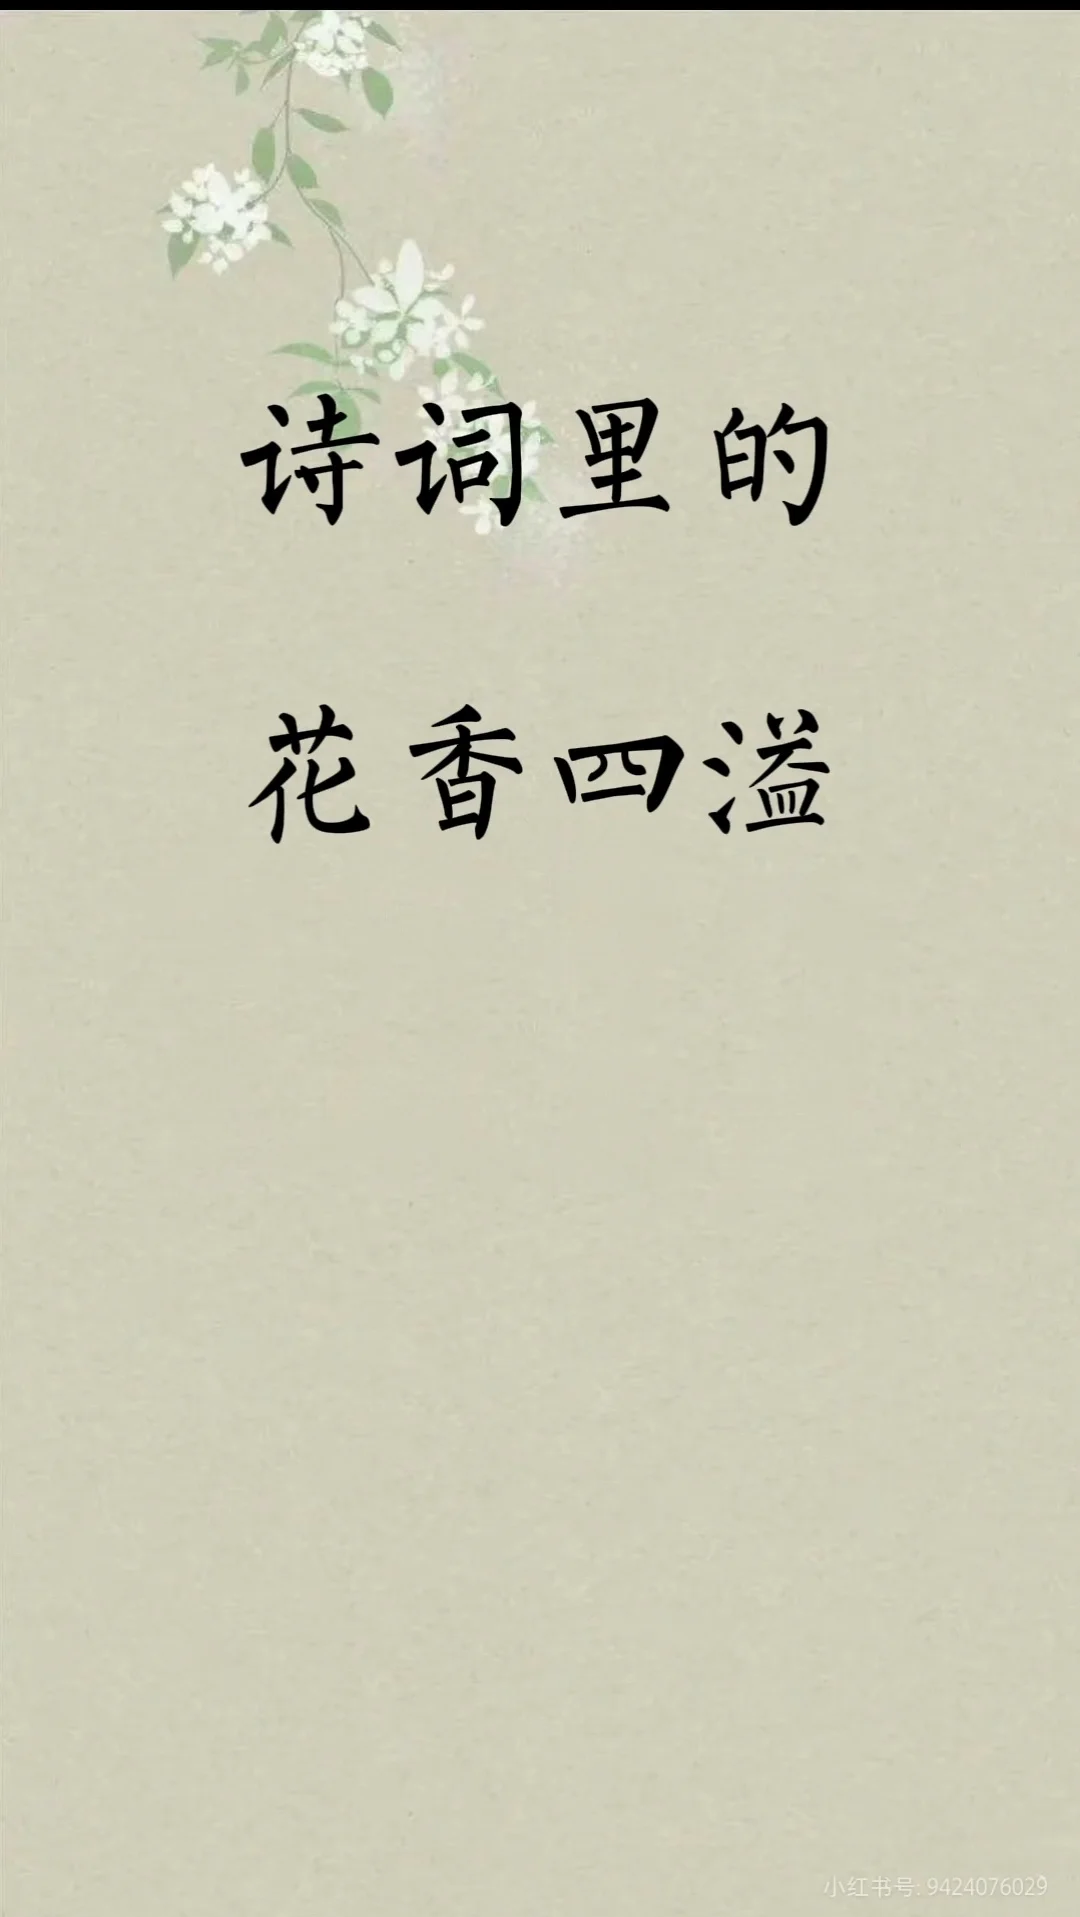 诗词里的
花香四溢
小红书号: 9424076029